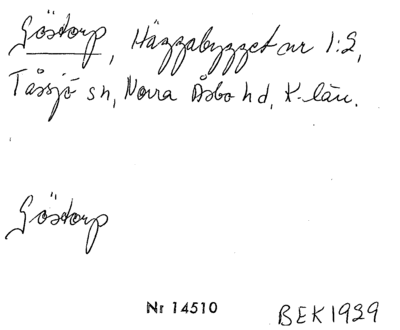 Göstorp, Häggabygget nr 1:2,
Tåssjö sn, Norra Åsbo hd, K-län.
Göstorp
Nr 14510 BEK1929